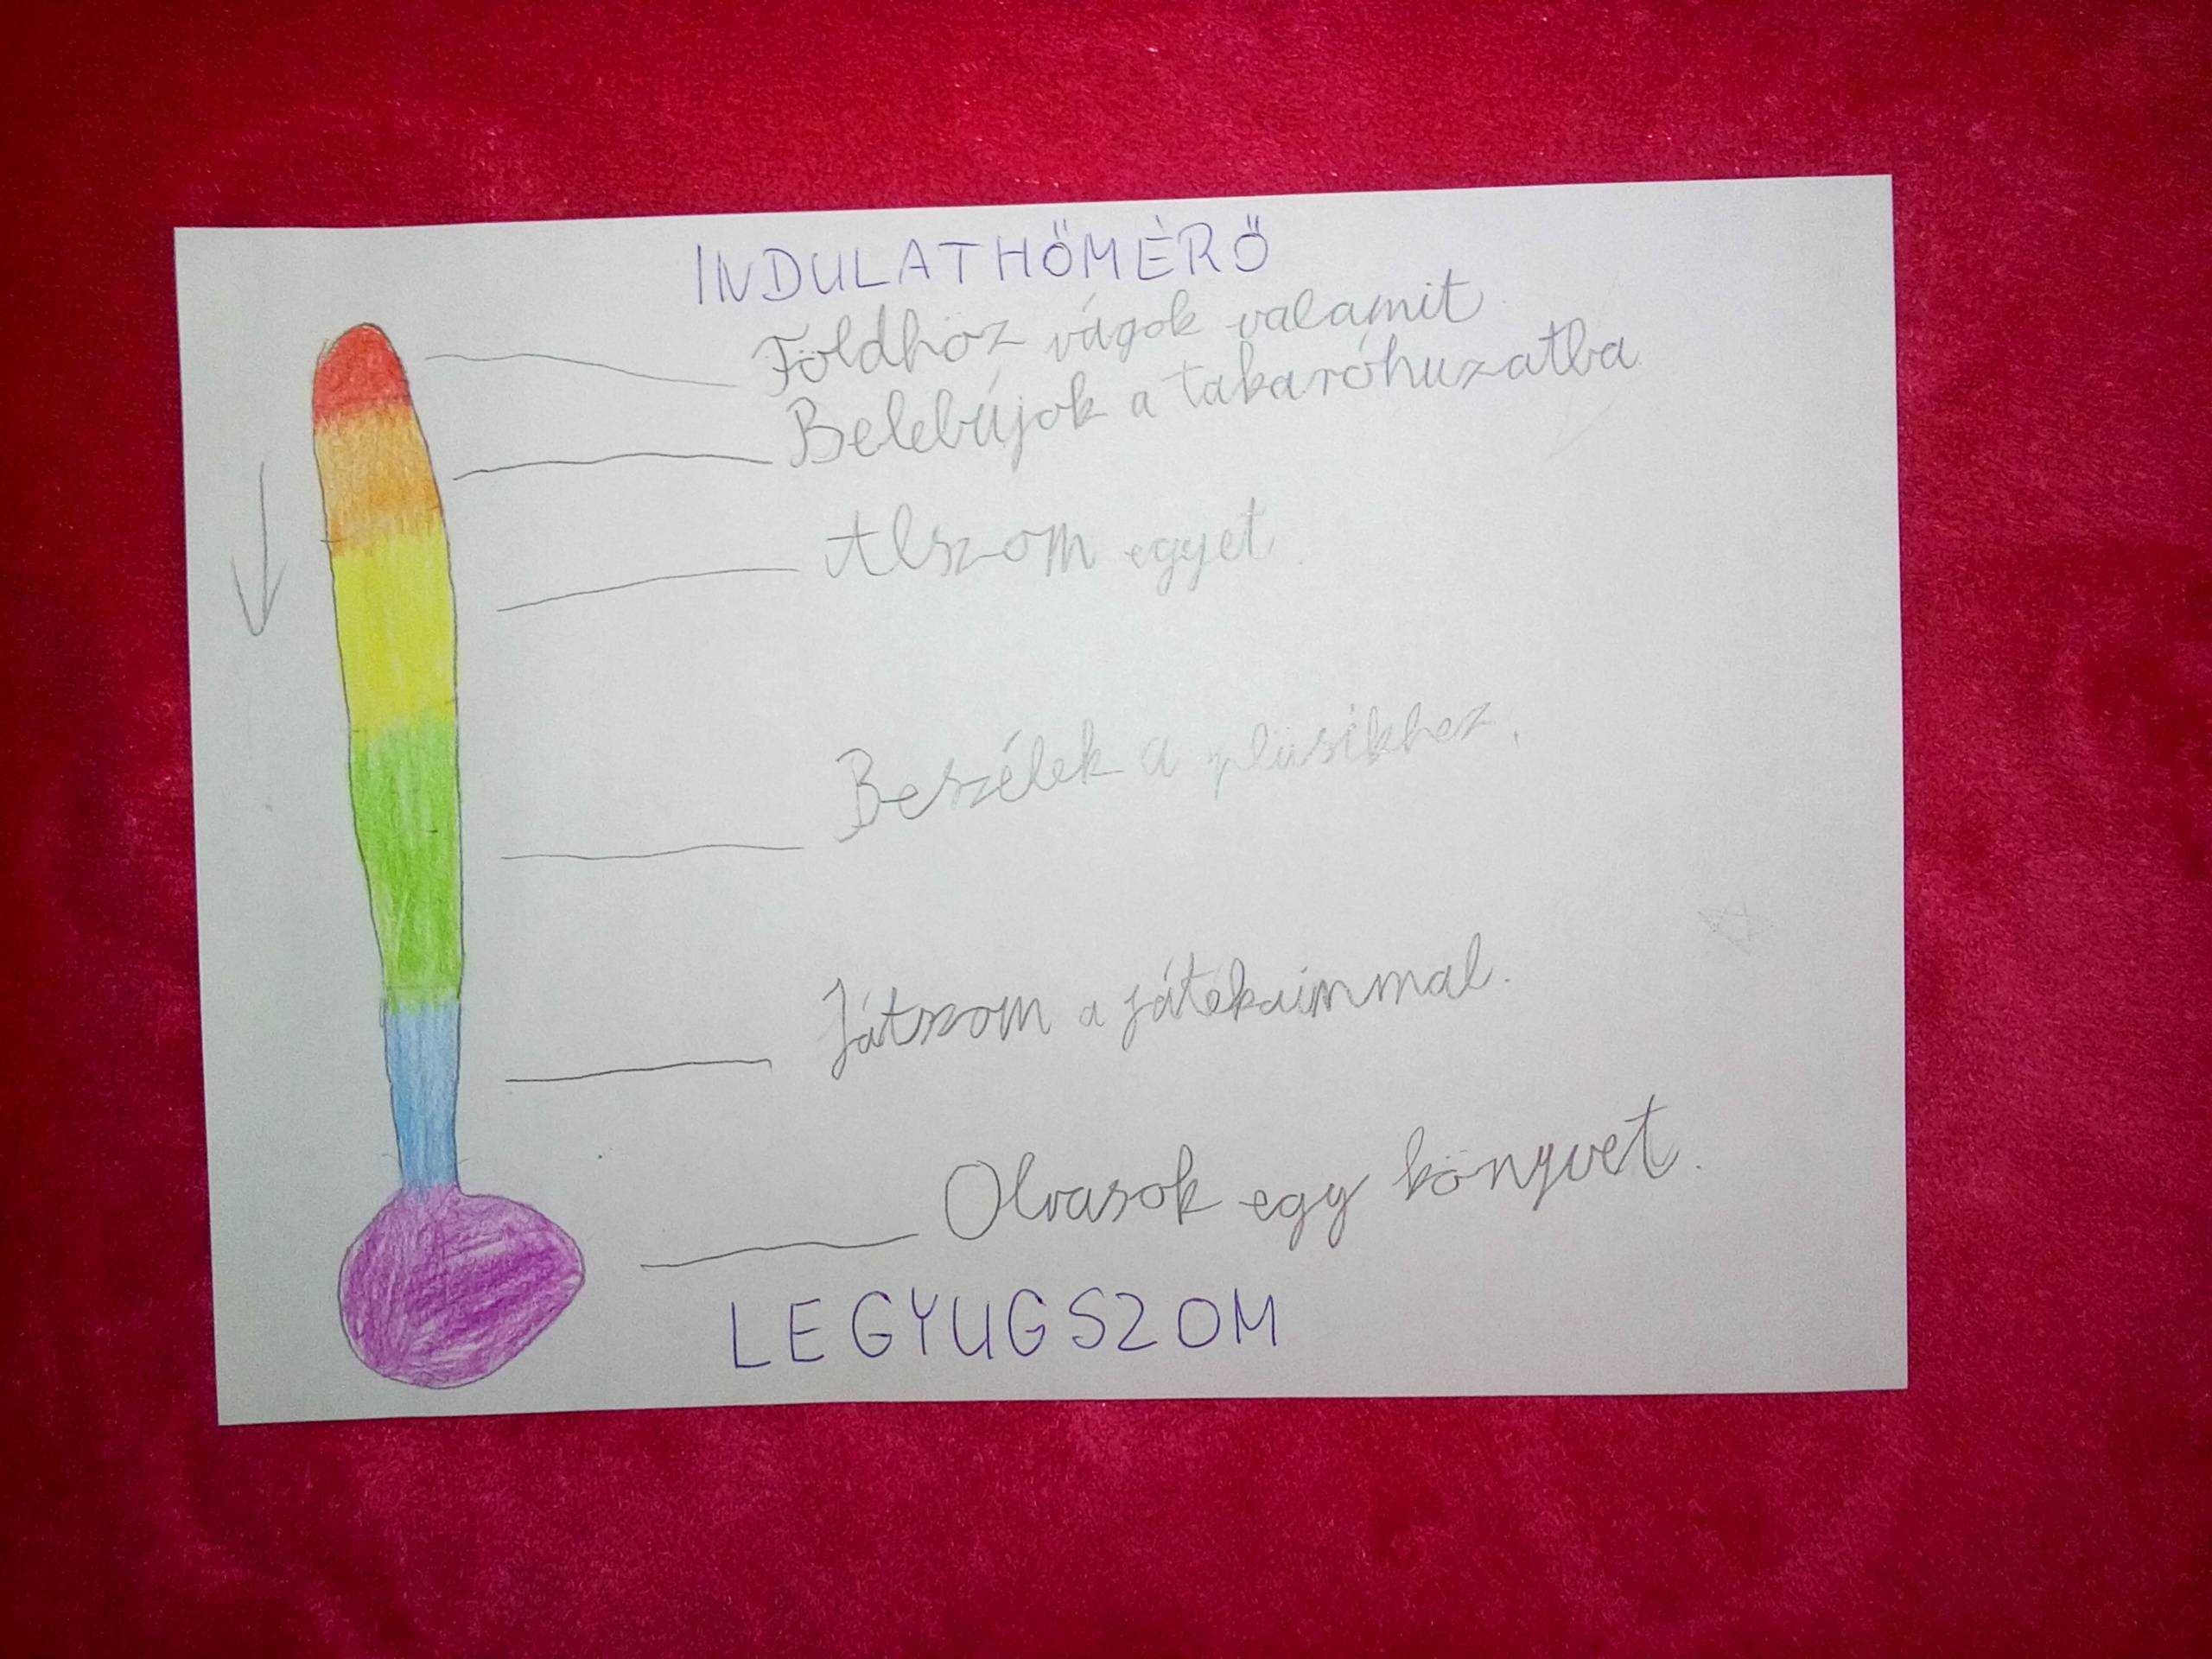 INDULATHŐMÉRŐ
Földhöz vágok valamit
Belebújok a takaróhuzatba
Alszom egyet.
Beszélek a plüsikhez.
Játszom a játékaimmal.
Olvasok egy könyvet.
LEGYUGSZOM